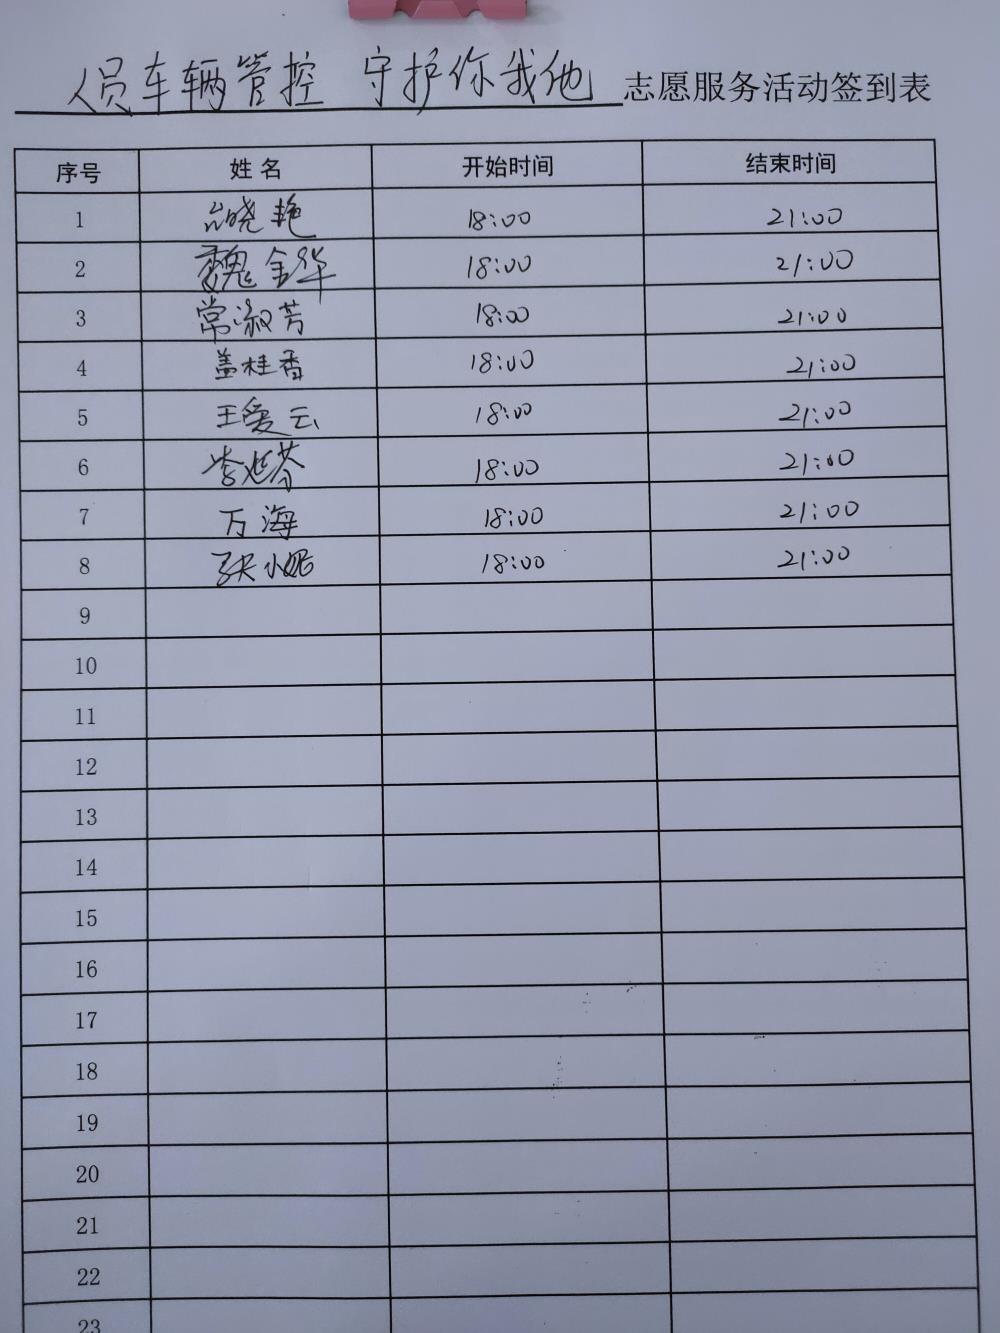 人员车辆管控 守护你我他 志愿服务活动签到表
序号 姓名 开始时间 结束时间
1 晓艳 18:00 21:00
2 魏金华 18:00 21:00
3 常淑芳 18:00 21:00
4 盖桂香 18:00 21:00
5 王爱云 18:00 21:00
6 李延芬 18:00 21:00
7 万海 18:00 21:00
8 张小妮 18:00 21:00
9
10
11
12
13
14
15
16
17
18
19
20
21
22
23